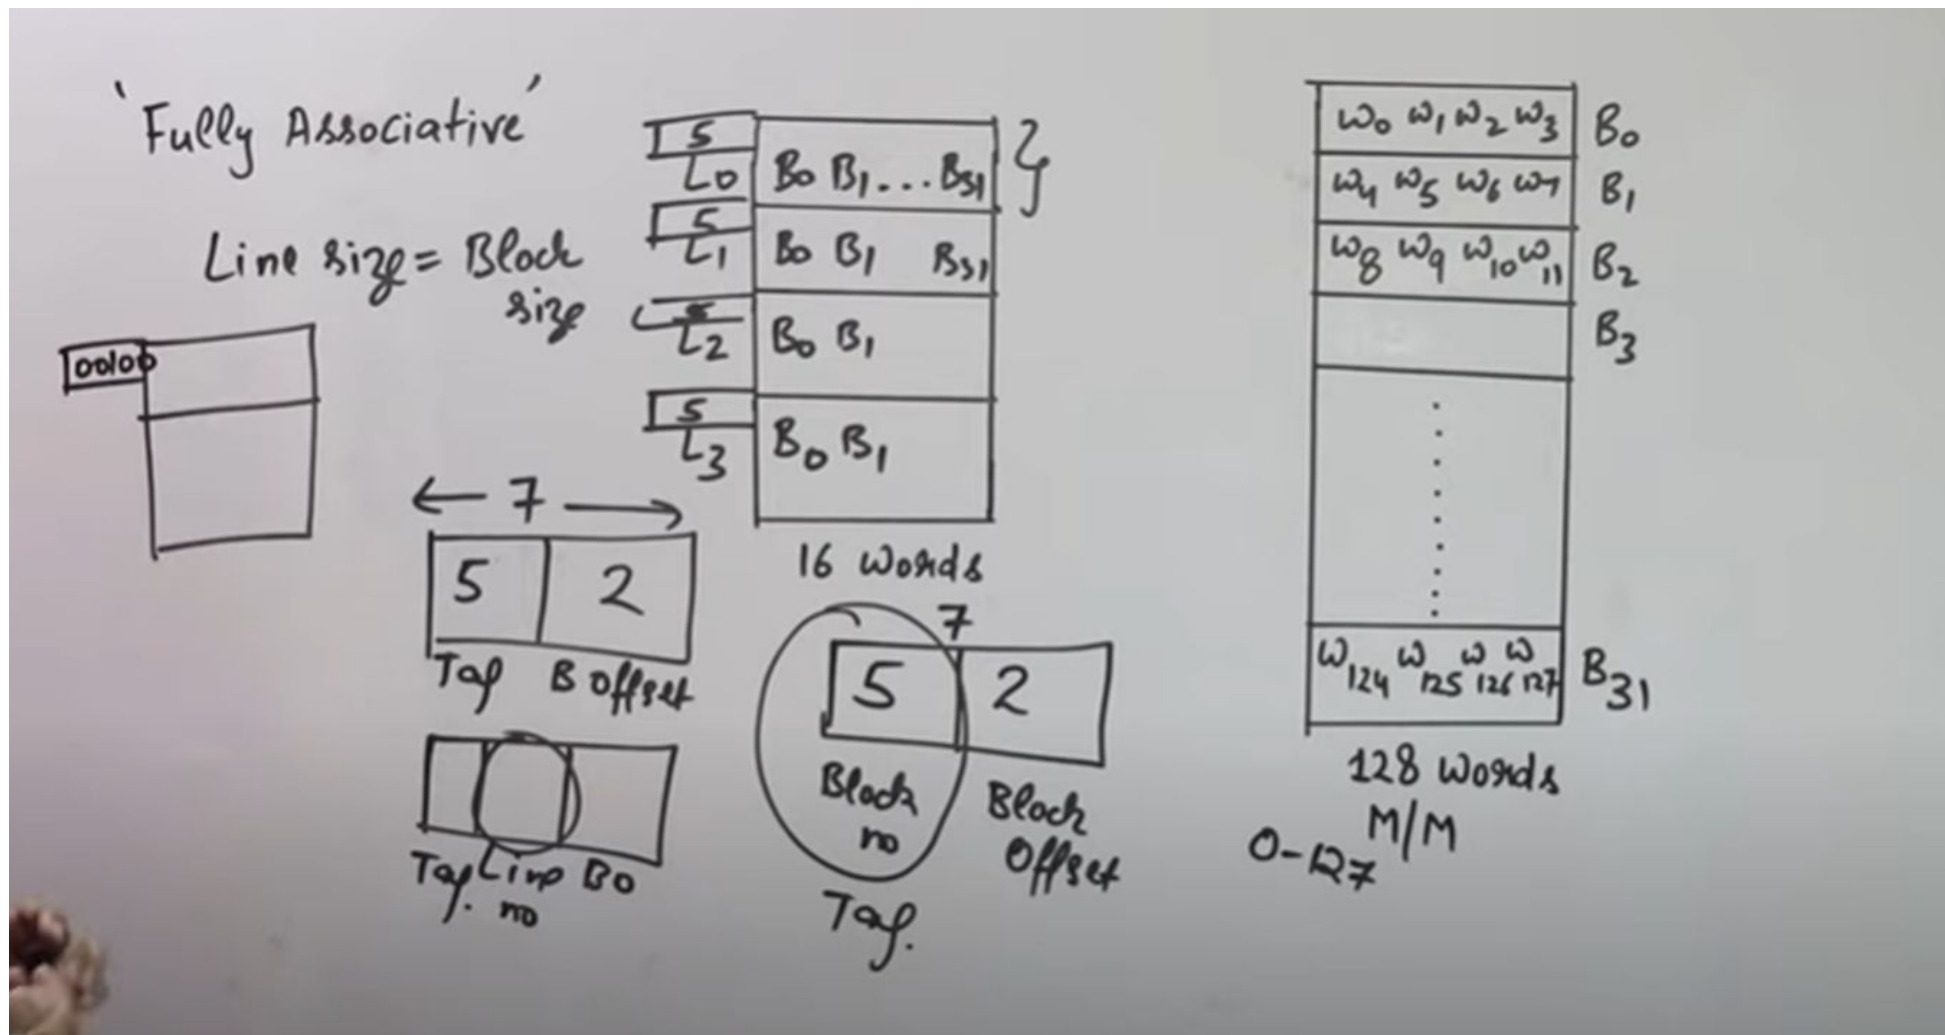 'Fully Associative'
Line size = Block
size
00100
5
L0 B0 B1 ... B31
5
L1 B0 B1 B31
5
L2 B0 B1
5
L3 B0 B1
16 words
7
5 2
Tag B offset
Tag. Line no BO
7
5 2
Block no
Block Offset
Tag.
W0 W1 W2 W3 B0
W4 W5 W6 W7 B1
W8 W9 W10 W11 B2
B3
W124 W125 W126 W127 B31
128 words
M/M
0-127